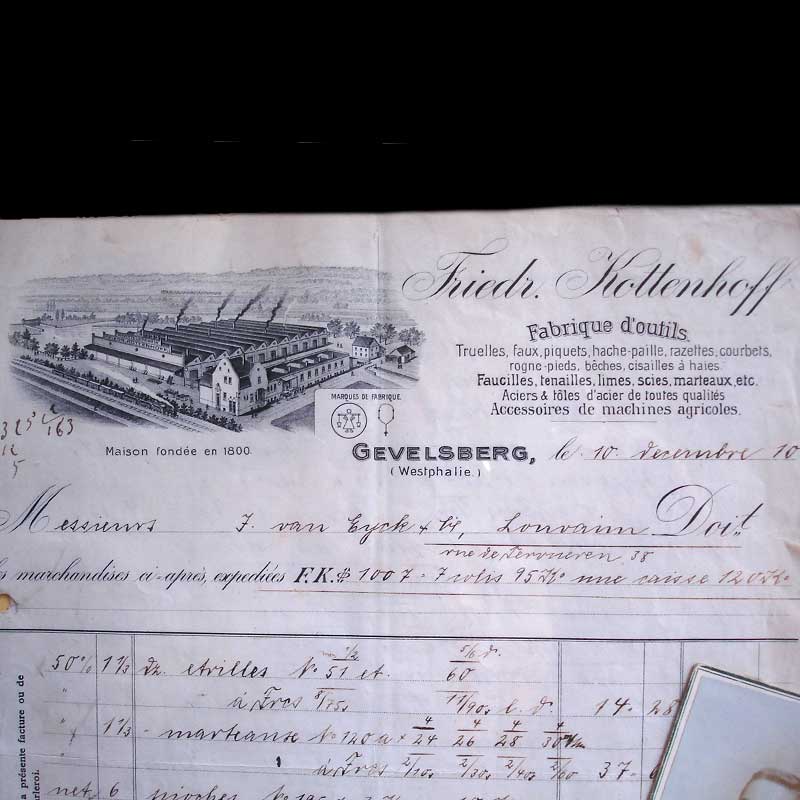 Friedr. Kottenhoff
Fabrique d'outils.
Truelles, faux, piquets, hache-paille, razettes, courbets,
rogne-pieds, bêches, cisailles à haies.
Faucilles, tenailles, limes, scies, marteaux, etc.
Aciers & tôles d'acier de toutes qualités
Accessoires de machines agricoles.
MARQUES DE FABRIQUE.
163
Maison fondée en 1800.
GEVELSBERG, le 10 decembre 10
(Westphalie.)
Messieurs J. van Eyck & Cie, Louvain Doit
rue de Tervueren 38
marchandises ci-après, expédiées F.K.# 1007 - 7 colis 95 K° une caisse 120 K°
50% 1 1/3 dz. etrilles N° 51 et 60
à Frcs 14 - 28
" 1 1/3 " marteaux N° 120a × 4/24 4/26 4/28 4/30
à Frcs 37 -
net 6 pioches N°
a présente facture ou de
arleroi.